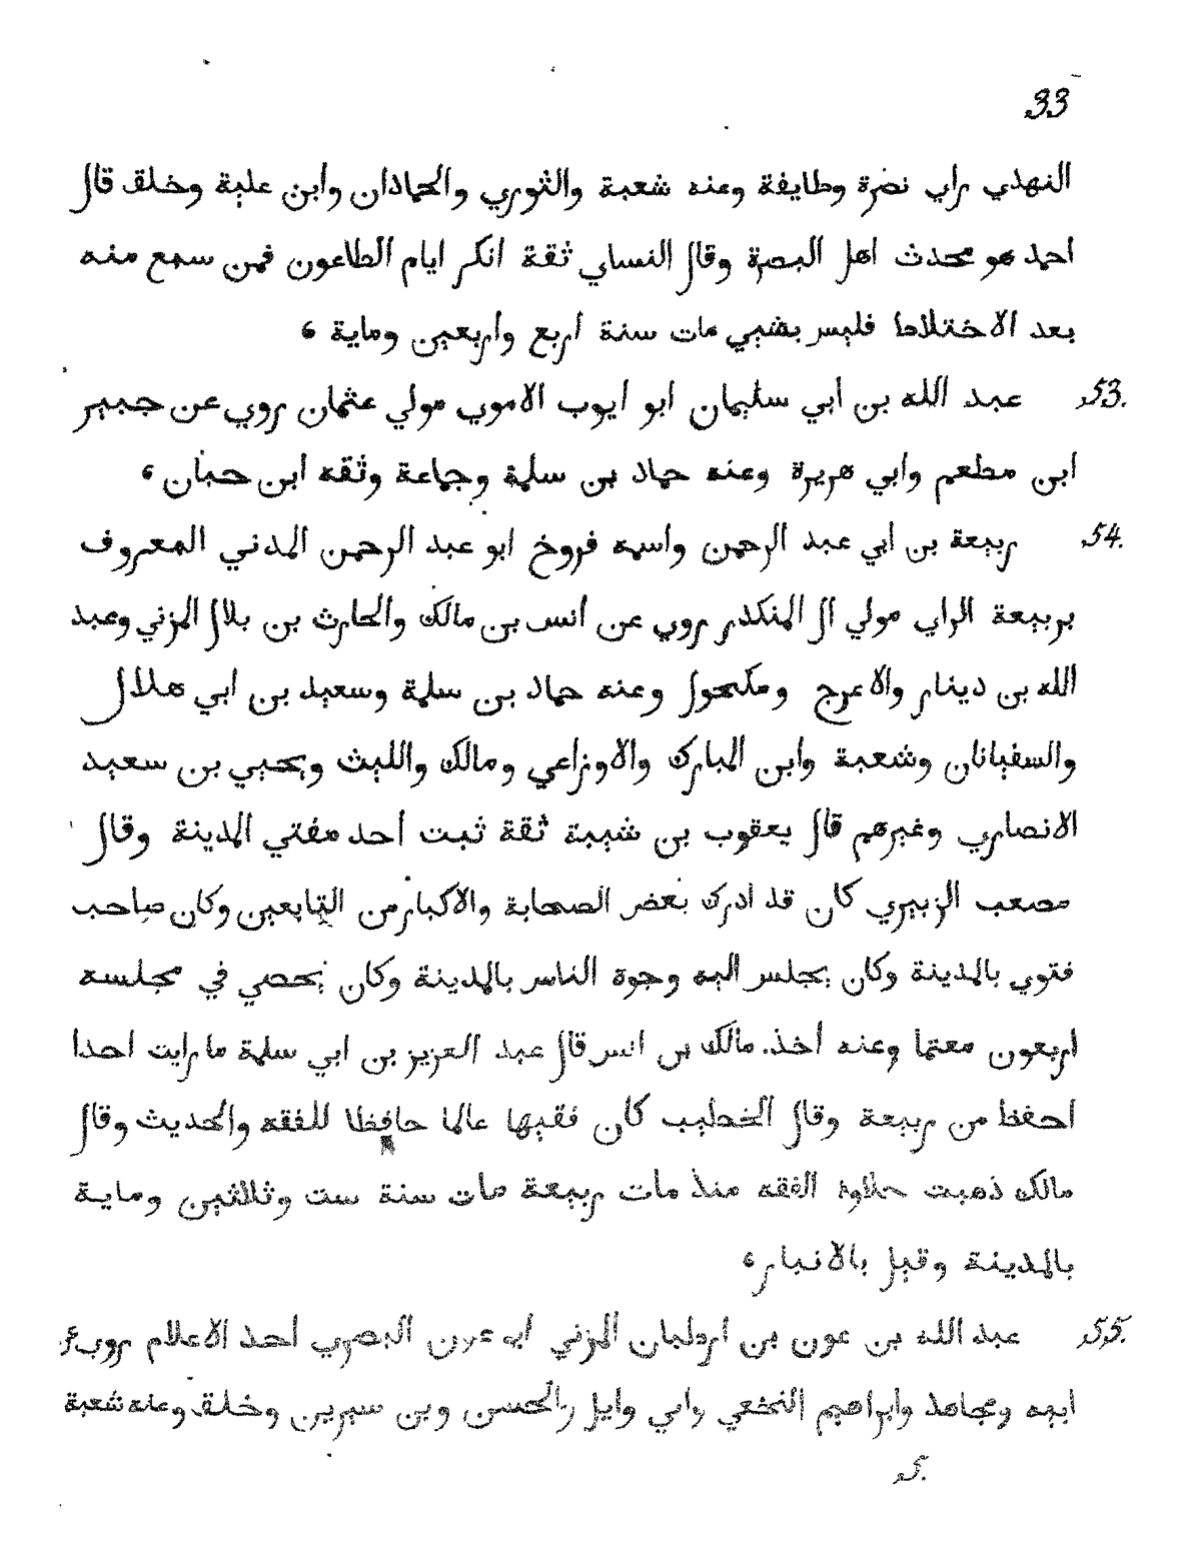 33
النهدي راب نضرة وطايفة وعنه شعبة والثوري والحمادان وابن علية وخلق قال
احمد هو محدث اهل البصرة وقال النساي ثقة انكر ايام الطاعون فمن سمع منه
بعد الاختلاط فليس بشيي مات سنة اربع واربعين وماية ،
53. عبد الله بن أبي سليمان ابو ايوب الاموي مولي عثمان روي عن جبير
ابن مطعم وابي هريرة وعنه حماد بن سلمة وجماعة وثقه ابن حبان ،
54. ربيعة بن ابي عبد الرحمن واسمه فروخ ابو عبد الرحمن المدني المعروف
بربيعة الراي مولي ال المنكدر روي عن أنس بن مالك والحارث بن بلال المزني وعبد
الله بن دينار والاعرج ومكحول وعنه حماد بن سلمة وسعيد بن ابي هلال
والسفيانان وشعبة وابن المبارك والاوزاعي ومالك والليث ويحيي بن سعيد
الانصاري وغيرهم قال يعقوب بن شيبة ثقة ثبت أحد مفتي المدينة وقال
مصعب الزبيري كان قد ادرك بعض الصحابة والاكبار من التابعين وكان صاحب
فتوي بالمدينة وكان يجلس اليه وجوة الناس بالمدينة وكان يحصي في مجلسه
اربعون معتما وعنه أخذ مالك بن انس قال عبد العزيز بن ابي سلمة ما رايت احدا
احفظ من ربيعة وقال الخطيب كان فقيها عالما حافظا للفقه والحديث وقال
مالك ذهبت حلاوة الفقه منذ مات ربيعة مات سنة ست وثلاثين وماية
بالمدينة وقيل بالانبار ،
55. عبد الله بن عون بن ارطبان المزني ابو عون البصري أحد الاعلام روي ع
ابيه ومجاهد وابراهيم النخعي وابي وايل والحسن وبن سيرين وخلق وعنه شعبة
5.